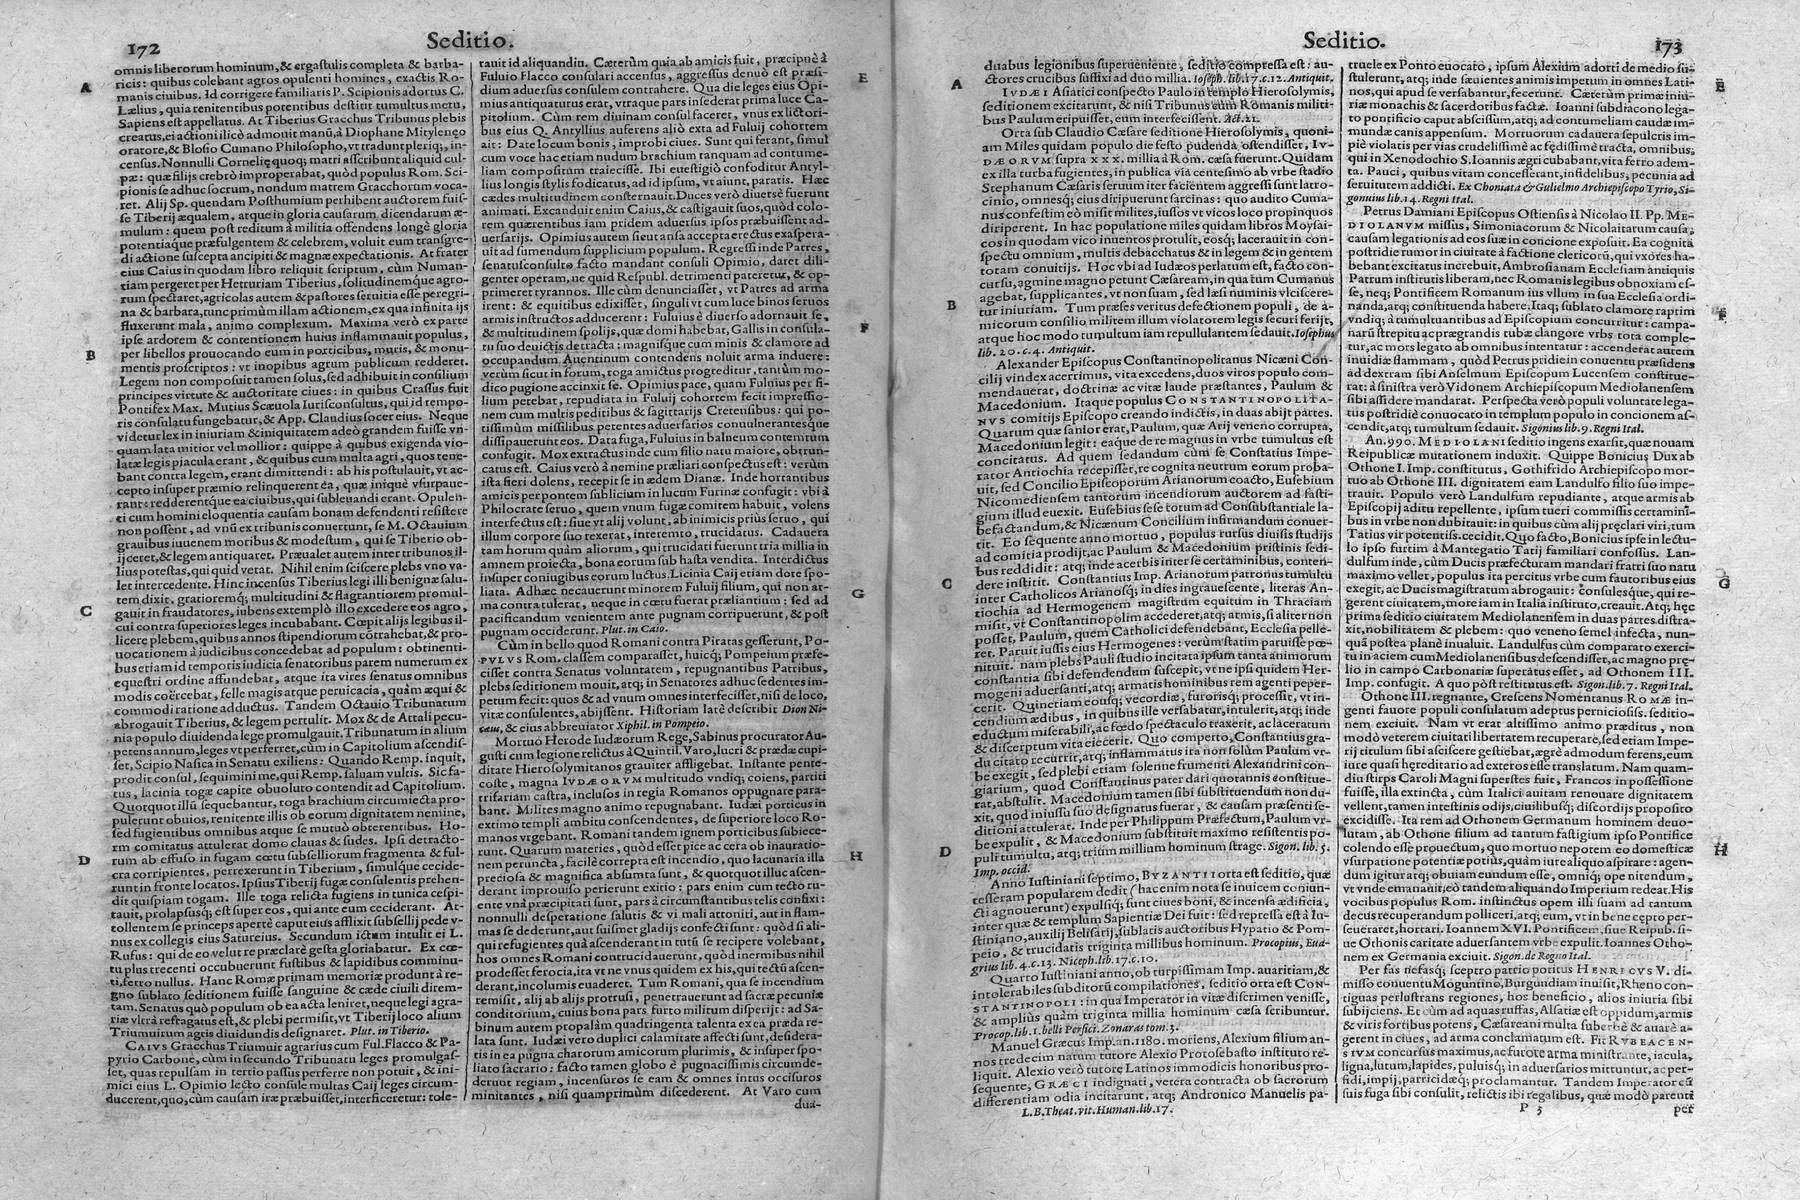 172
Seditio.
omnis liberorum hominum, & ergastulis completa & barba-
ricis: quibus colebant agros opulenti homines, exactis Ro-
manis ciuibus. Id corrigere familiaris P. Scipionis adortus C.
Lælius, quia renitentibus potentibus destitit tumultus metu,
Sapiens est appellatus. At Tiberius Gracchus Tribunus plebis
creatus, ei actioni ilicò admouit manū, à Diophane Mitylenęo
oratore, & Blosio Cumano Philosopho, vt tradunt pleriq;, in-
census. Nonnulli Cornelię quoq; matri asscribunt aliquid cul-
pæ: quæ filijs crebrò improperabat, quòd populus Rom. Sci-
pionis se adhuc socrum, nondum matrem Gracchorum voca-
ret. Alij Sp. quendam Posthumium perhibent auctorem fuis-
se Tiberij æqualem, atque in gloria causarum dicendarum æ-
mulum: quem post reditum à militia offendens longè gloria
potentiaq́ue præfulgentem & celebrem, voluit eum transgre-
di actione suscepta ancipiti & magnæ expectationis. At frater
eius Caius in quodam libro reliquit scriptum, cùm Numan-
tiam pergeret per Hetruriam Tiberius, solitudinemq́ue agro-
rum spectaret, agricolas autem & pastores seruitia esse peregri-
na & barbara, tunc primùm illam actionem, ex qua infinita ijs
fluxerunt mala, animo complexum. Maxima verò ex parte
ipse ardorem & contentionem huius inflammauit populus,
per libellos prouocando eum in porticibus, muris, & monu-
mentis proscriptos: vt inopibus agrum publicum redderet.
Legem non composuit tamen solus, sed adhibuit in consilium
principes virtute & auctoritate ciues: in quibus Crassus fuit
Pontifex Max. Mutius Scæuola Iurisconsultus, qui id tempo-
ris consulatu fungebatur, & App. Claudius socer eius. Neque
videtur lex in iniuriam & iniquitatem adeò grandem fuisse vn-
quam lata mitior vel mollior: quippe à quibus exigenda vio-
latæ legis piacula erant, & quibus cum multa agri, quos tene-
bant contra legem, erant dimittendi: ab his postulauit, vt ac-
cepto insuper præmio relinquerent ea, quæ iniquè vsurpaue-
rant: redderentque ea ciuibus, qui subleuandi erant. Opulen-
ti cum homini eloquentia causam bonam defendenti resistere
non possent, ad vnū ex tribunis conuertunt, se M. Octauium
grauibus iuuenem moribus & modestum, qui se Tiberio ob-
ijceret, & legem antiquaret. Præualet autem inter tribunos il-
lius potestas, qui quid vetat. Nihil enim sciscere plebs vno va-
let intercedente. Hinc incensus Tiberius legi illi benignæ salu-
tem dixit, gratioremq; multitudini & flagrantiorem promul-
gauit in fraudatores, iubens extemplò illo excedere eos agro,
cui contra superiores leges incubabant. Cœpit alijs legibus il-
licere plebem, quibus annos stipendiorum cōtrahebat, & pro-
uocationem à iudicibus concedebat ad populum: obtinenti-
bus etiam id temporis iudicia senatoribus parem numerum ex
equestri ordine affundebat, atque ita vires senatus omnibus
modis coërcebat, felle magis atque peruicacia, quàm æqui &
commodi ratione adductus. Tandem Octauio Tribunatum
abrogauit Tiberius, & legem pertulit. Mox & de Attali pecu-
nia populo diuidenda lege promulgauit. Tribunatum in alium
petens annum, leges vt perferret, cùm in Capitolium ascendis-
set, Scipio Nasica in Senatu exiliens: Quando Remp. inquit,
prodit consul, sequimini me, qui Remp. saluam vultis. Sic fa-
tus, lacinia togæ capite obuoluto contendit ad Capitolium.
Quotquot illū sequebantur, toga brachium circumiecta pro-
pulerunt obuios, renitente illis ob eorum dignitatem nemine,
sed fugientibus omnibus atque se mutuò obterentibus. Ho-
rm comitatus attulerat domo clauas & sudes. Ipsi detracto-
rum ab effuso in fugam cœtu subselliorum fragmenta & ful-
cra corripientes, perrexerunt in Tiberium, simulq́ue cecide-
runt in fronte locatos. Ipsius Tiberij fugæ consulentis prehen-
dit quispiam togam. Ille toga relicta fugiens in tunica cespi-
tauit, prolapsusq; est super eos, qui ante eum ceciderant. At-
tollentem se princeps apertè caput eius afflixit subsellij pede v-
nus ex collegis eius Satureius. Secundum ictum intulit ei L.
Rufus: qui de eo velut re præclarè gesta gloriabatur. Ex cœ-
tu plus trecenti occubuerunt fustibus & lapidibus comminu-
ti, ferro nullus. Hanc Romæ primam memoriæ produnt à re-
gno sublato seditionem fuisse sanguine & cæde ciuili direm-
tam. Senatus quò populum ob ea acta leniret, neque legi agra-
riæ vltrà refragatus est, & plebi permisit, vt Tiberij loco alium
Triumuirum agris diuidundis designaret. Plut. in Tiberio.
CAIVS Gracchus Triumuir agrarius cum Ful. Flacco & Pa-
pyrio Carbone, cùm in secundo Tribunatu leges promulgas-
set, quas repulsam in tertio passus perferre non potuit, & ini-
mici eius L. Opimio lecto consule multas Caij leges circum-
ducerent, quo, cùm causam iræ præbuisset, interficeretur: tole-
A
B
C
D
tauit id aliquandiu. Cæterùm quia ab amicis fuit, præcipuè à
Fuluio Flacco consulari accensus, aggressus denuò est præsi-
dium aduersus consulem contrahere. Qua die leges eius Opi-
mius antiquaturus erat, vtraque pars insederat prima luce Ca-
pitolium. Cùm rem diuinam consul faceret, vnus ex lictori-
bus eius Q. Antyllius auferens aliò exta ad Fuluij cohortem
ait: Date locum bonis, improbi ciues. Sunt qui ferant, simul
cum voce hac etiam nudum brachium tanquam ad contume-
liam compositum traiecisse. Ibi euestigiò confoditur Antyl-
lius longis stylis fodicatus, ad id ipsum, vt aiunt, paratis. Hæc
cædes multitudinem consternauit. Duces verò diuersè fuerunt
animati. Excanduit enim Caius, & castigauit suos, quòd colo-
rem quærentibus iam pridem aduersus ipsos præbuissent ad-
uersarijs. Opimius autem sicut ansa accepta erectus exaspera-
uit ad sumendum supplicium populum. Regressi inde Patres,
senatusconsulto facto mandant consuli Opimio, daret dili-
genter operam, ne quid Respubl. detrimenti pateretur, & op-
primeret tyrannos. Ille cùm denunciasset, vt Patres ad arma
irent: & equitibus edixisset, singuli vt cum luce binos seruos
armis instructos adducerent: Fuluius è diuerso adornauit se,
& multitudinem spolijs, quæ domi habebat, Gallis in consula-
tu suo deuictis detracta: magnisq́ue cum minis & clamore ad
occupandum Auentinum contendens noluit arma induere:
verùm sicut in forum, toga amictus progreditur, tantùm mo-
dico pugione accinxit se. Opimius pace, quam Fuluius per fi-
lium petebat, repudiata in Fuluij cohortem fecit impressio-
nem cum multis peditibus & sagittarijs Cretensibus: qui po-
tissimùm missilibus petentes aduersarios conuulnerantesque
dissipauerunt eos. Data fuga, Fuluius in balneum contemtum
confugit. Mox extractus inde cum filio natu maiore, obtrun-
catus est. Caius verò à nemine præliari conspectus est: verùm
ista fieri dolens, recepit se in ædem Dianæ. Inde hortantibus
amicis per pontem sublicium in lucum Furinæ confugit: vbi à
Philocrate seruo, quem vnum fugæ comitem habuit, volens
interfectus est: siue vt alij volunt, ab inimicis priùs seruo, qui
illum corpore suo texerat, interemto, trucidatus. Cadauera
tam horum quàm aliorum, qui trucidati fuerunt tria millia in
amnem proiecta, bona eorum sub hasta vendita. Interdictus
insuper coniugibus eorum luctus. Licinia Caij etiam dote spo-
liata. Adhæc necauerunt minorem Fuluij filium, qui non ar-
ma contra tulerat, neque in cœtu fuerat præliantium: sed ad
pacificandum venientem ante pugnam corripuerunt, & post
pugnam occiderunt. Plut. in Caio.
Cùm in bello quod Romani contra Piratas gesserunt, PO-
PVLVS Rom. classem comparasset, huicq; Pompeium præfe-
cisset contra Senatus voluntatem, repugnantibus Patribus,
plebs seditionem mouit, atq; in Senatores adhuc sedentes im-
petum fecit: quos & ad vnum omnes interfecisset, nisi de loco,
vitæ consulentes, abijssent. Historiam latè describit Dion Ni-
cæus, & eius abbreuiator Xiphil. in Pompeio.
Mortuo Herode Iudæorum Rege, Sabinus procurator Au-
gusti cum legione relictus à Quintil. Varo, lucri & prædæ cupi-
ditate Hierosolymitanos grauiter affligebat. Instante pente-
coste, magna IVDÆORVM multitudo vndiq; coiens, partiti
trifariam castra, inclusos in regia Romanos oppugnare para-
bant. Milites magno animo repugnabant. Iudæi porticus in
extimo templi ambitu conscendentes, de superiore loco Ro-
manos vrgebant. Romani tandem ignem porticibus subiece-
runt. Quarum materies, quòd esset pice ac cera ob inauratio-
nem peruncta, facilè correpta est incendio, quo lacunaria illa
preciosa & magnifica absumta sunt, & quotquot illuc ascen-
derant improuiso perierunt exitio: pars enim cum tecto ru-
ente vnà præcipitati sunt, pars à circumstantibus telis confixi:
nonnulli desperatione salutis & vi mali attoniti, aut in flam-
mas se dederunt, aut suismet gladijs confecti sunt: quòd si ali-
qui refugientes quà ascenderant in tutū se recipere volebant,
hos omnes Romani contrucidauerunt, quòd inermibus nihil
prodesset ferocia, ita vt ne vnus quidem ex his, qui tectū ascen-
derant, incolumis euaderet. Tum Romani, qua se incendium
remisit, alij ab alijs protrusi, penetrauerunt ad sacræ pecuniæ
conditorium, cuius bona pars furto militum disperijt: ad Sa-
binum autem propalàm quadringenta talenta ex ea præda re-
lata sunt. Iudæi verò duplici calamitate affecti sunt, desidera-
tis in ea pugna charorum amicorum plurimis, & insuper spo-
liato sacrario: facto tamen globo è pugnacissimis circumde-
derunt regiam, incensuros se eam & omnes intus occisuros
minitantes, nisi quamprimùm discederent. At Varo cum
dua-
E
F
G
H
Seditio.
173
duabus legionibus superueniente, seditio compressa est: au-
ctores crucibus suffixi ad duo millia. Ioseph. lib. 17. c. 12. Antiquit.
IVDÆI Asiatici conspecto Paulo in templo Hierosolymis,
seditionem excitarunt, & nisi Tribunus eum Romanis militi-
bus Paulum eripuisset, eum interfecissent. Act. 21.
Orta sub Claudio Cæsare seditione Hierosolymis, quoni-
am Miles quidam populo die festo pudenda ostendisset, IV-
DÆORVM supra XXX. millia à Rom. cæsa fuerunt. Quidam
ex illa turba fugientes, in publica via centesimo ab vrbe stadio
Stephanum Cæsaris seruum iter facientem aggressi sunt latro-
cinio, omnesq; eius diripuerunt sarcinas: quo audito Cuma-
nus confestim eò misit milites, iussos vt vicos loco propinquos
diriperent. In hac populatione miles quidam libros Moysai-
cos in quodam vico inuentos protulit, eosq; lacerauit in con-
spectu omnium, multis debacchatus & in legem & in gentem
totam conuitijs. Hoc vbi ad Iudæos perlatum est, facto con-
cursu, agmine magno petunt Cæsaream, in qua tùm Cumanus
agebat, supplicantes, vt non suam, sed læsi numinis vlciscere-
tur iniuriam. Tum præses veritus defectionem populi, de a-
micorum consilio militem illum violatorem legis securi ferijt,
atque hoc modo tumultum iam repullulantem sedauit. Iosephus
lib. 20. c. 4. Antiquit.
Alexander Episcopus Constantinopolitanus Nicæni Con-
cilij vindex acerrimus, vita excedens, duos viros populo com-
mendauerat, doctrinæ ac vitæ laude præstantes, Paulum &
Macedonium. Itaque populus CONSTANTINOPOLITA-
NVS comitijs Episcopo creando indictis, in duas abijt partes.
Quarum quæ sanior erat, Paulum, quæ Arij veneno corrupta,
Macedonium legit: eaque de re magnus in vrbe tumultus est
concitatus. Ad quem sedandum cùm se Constatius Impe-
rator Antiochia recepisset, re cognita neutrum eorum proba-
uit, sed Concilio Episcoporum Arianorum coacto, Eusebium
Nicomediensem tantorum incendiorum auctorem ad fasti-
gium illud euexit. Eusebius sese totum ad Consubstantiale la-
befactandum, & Nicænum Concilium infirmandum conuer-
tit. Eo sequente anno mortuo, populus rursus diuisis studijs
ad comitia prodijt, ac Paulum & Macedonium pristinis sedi-
bus reddidit: atq; inde acerbis inter se certaminibus, conten-
dere institit. Constantius Imp. Arianorum patronus tumultu
inter Catholicos Arianosq́; in dies ingrauescente, literas An-
tiochia ad Hermogenem magistrum equitum in Thraciam
misit, vt Constantinopolim accederet, atq; armis, si aliter non
posset, Paulum, quem Catholici defendebant, Ecclesia pelle-
ret. Paruit iussis eius Hermogenes: verùm statim paruisse pœ-
nituit. nam plebs Pauli studio incitata ipsum tanta animorum
constantia sibi defendendum suscepit, vt ne ipsi quidem Her-
mogeni aduersanti, atq; armatis hominibus rem agenti peper-
cerit. Quinetiam eousq; vecordiæ, furorisq; processit, vt in-
cendium ædibus, in quibus ille versabatur, intulerit, atq; inde
eductum miserabili, ac fœdo spectaculo traxerit, ac laceratum
& discerptum vita eiecerit. Quo comperto, Constantius gra-
du citato recurrit, atq; inflammatus ira non solùm Paulum vr-
be exegit, sed plebi etiam solenne frumenti Alexandrini con-
giarium, quod Constantinus pater dari quotannis constitue-
rat, abstulit. Macedonium tamen sibi substituendum non du-
xit, quod iniussu suo designatus fuerat, & causam præsenti se-
ditioni attulerat. Inde per Philippum Præfectum, Paulum vr-
be expulit, & Macedonium substituit maximo resistentis po-
puli tumultu, atq; trium millium hominum strage. Sigon. lib. 5.
Imp. occid.
Anno Iustiniani septimo, BYZANTII orta est seditio, quæ
tesseram popularem dedit (hac enim nota se inuicem coniun-
cti agnouerunt) expulsiq; sunt ciues boni, & incensa ædificia,
inter quæ & templum Sapientiæ Dei fuit: sed repressa est à Iu-
stiniano, auxilij Belisarij, sublatis auctoribus Hypatio & Pom-
peio, & trucidatis triginta millibus hominum. Procopius, Eua-
grius lib. 4. c. 13. Niceph. lib. 17. c. 10.
Quarto Iustiniani anno, ob turpissimam Imp. auaritiam, &
intolerabiles subditorū compilationes, seditio orta est CON-
STANTINOPOLI: in qua Imperator in vitæ discrimen venisse,
& ampliùs quàm triginta millia hominum cæsa scribuntur.
Procop. lib. 1. belli Persici. Zonaras tom. 3.
Manuel Græcus Imp. an. 1180. moriens, Alexium filium an-
nos tredecim natum tutore Alexio Protosebasto instituto re-
liquit. Alexio verò tutore Latinos immodicis honoribus pro-
sequente, GRÆCI indignati, vetera contracta ob sacrorum
differentiam odia incitarunt, atq; Andronico Manuelis pa-
L. B. Theat. vit. Human. lib. 17.
A
B
C
D
truele ex Ponto euocato, ipsum Alexium adorti de medio su-
stulerunt, atq; inde sæuientes animis impetum in omnes Lati-
nos, qui apud se versabantur, fecerunt. Cæterùm primæ iniu-
riæ monachis & sacerdotibus factæ. Ioanni subdiacono lega-
to pontificio caput abscissum, atq; ad contumeliam caudæ im-
mundæ canis appensum. Mortuorum cadauera sepulcris im-
piè violatis per vias crudelissimè ac fędissimè tracta, omnibus,
qui in Xenodochio S. Ioannis ægri cubabant, vita ferro adem-
ta. Pauci, quibus vitam concesserant, infidelibus, pecunia ad
seruitutem addicti. Ex Choniata & Gulielmo Archiepiscopo Tyrio, Si-
gonius lib. 14. Regni Ital.
Petrus Damiani Episcopus Ostiensis à Nicolao II. Pp. ME-
DIOLANVM missus, Simoniacorum & Nicolaitarum causa,
causam legationis ad eos suæ in concione exposuit. Ea cognita
postridie rumor in ciuitate à factione clericorū, qui vxores ha-
bebant excitatus increbuit, Ambrosianam Ecclesiam antiquis
Patrum institutis liberam, nec Romanis legibus obnoxiam es-
se, neq; Pontificem Romanum ius vllum in sua Ecclesia ordi-
nanda, atq; constituenda habere. Itaq; sublato clamore raptim
vndiq; à tumultuantibus ad Episcopium concurritur: campa-
narū strepitu ac prægrandis tubæ clangore vrbs tota comple-
tur, ac mors legato ab omnibus intentatur: accenderat autem
inuidiæ flammam, quòd Petrus pridie in conuentu præsidens
ad dextram sibi Anselmum Episcopum Lucensem constitue-
rat: à sinistra verò Vidonem Archiepiscopum Mediolanensem
sibi assidere mandarat. Perspecta verò populi voluntate lega-
tus postridiè conuocato in templum populo in concionem as-
cendit, atq; tumultum sedauit. Sigonius lib. 9. Regni Ital.
An. 990. MEDIOLANI seditio ingens exarsit, quæ nouam
Reipublicæ mutationem induxit. Quippe Bonicius Dux ab
Othone I. Imp. constitutus, Gothifrido Archiepiscopo mor-
tuo ab Othone III. dignitatem eam Landulfo filio suo impe-
trauit. Populo verò Landulfum repudiante, atque armis ab
Episcopij aditu repellente, ipsum tueri commissis certamini-
bus in vrbe non dubitauit: in quibus cùm alij pręclari viri, tum
Tatius vir potentiss. cecidit. Quo facto, Bonicius ipse in lectu-
lo ipso furtim à Mantegatio Tatij familiari confossus. Lan-
dulfum inde, cùm Ducis præfecturam mandari fratri suo natu
maximo vellet, populus ita percitus vrbe cum fautoribus eius
exegit, ac Ducis magistratum abrogauit: consulesque, qui re-
gerent ciuitatem, more iam in Italia instituto, creauit. Atq; hęc
prima seditio ciuitatem Mediolanensem in duas partes distra-
xit, nobilitatem & plebem: quo veneno semel infecta, nun-
quā postea planè inualuit. Landulfus cùm comparato exerci-
tu in aciem cum Mediolanensibus descendisset, ac magno prę-
lio in campo Carbonariæ superatus esset, ad Othonem III.
Imp. confugit. A quo pòst restitutus est. Sigon. lib. 7. Regni Ital.
Othone III. regnante, Crescens Nomentanus ROMÆ in-
genti fauore populi consulatum adeptus perniciosiss. seditio-
nem exciuit. Nam vt erat altissimo animo præditus, non
modò veterem ciuitati libertatem recuperare, sed etiam Impe-
rij titulum sibi asciscere gestiebat, ægrè admodum ferens, eum
iure quasi hęreditario ad exteros esse translatum. Nam quam-
diu stirps Caroli Magni superstes fuit, Francos in possessione
fuisse, illa extincta, cùm Italici auitam renouare dignitatem
vellent, tamen intestinis odijs, ciuilibusq; discordijs proposito
excidisse. Ita rem ad Othonem Germanum hominem deuo-
lutam, ab Othone filium ad tantum fastigium ipso Pontifice
colendo esse prouectum, quo mortuo nepotem eo domesticæ
vsurpatione potentiæ potiùs, quàm iure aliquo aspirare: agen-
dum igitur atq; obuiam eundum esse, omniq; ope nitendum,
vt vnde emanauit, eò tandem aliquando Imperium redeat. His
vocibus populus Rom. instinctus opem illi suam ad tantum
decus recuperandum polliceri, atq; eum, vt in bene cepto per-
seueraret, hortari. Ioannem XVI. Pontificem, siue Reipub. si-
ue Othonis caritate aduersantem vrbe expulit. Ioannes Otho-
nem ex Germania exciuit. Sigon. de Regno Ital.
Per fas nefasq; sceptro patrio potitus HENRICVS V. di-
misso conuentu Moguntino, Burgundiam inuisit, Rheno con-
tiguas perlustrans regiones, hos beneficio, alios iniuria sibi
subijciens. Et cùm ad aquas ruffas, Alsatiæ est oppidum, armis
& viris fortibus potens, Cæsareani multa superbè & auarè a-
gerent in ciues, ad arma conclamatum est. Fit RVBEACEN-
SIVM concursus maximus, ac furore arma ministrante, iacula,
ligna, lutum, lapides, puluisq; in aduersarios mittuntur, ac per-
fidi, impij, parricidæq; proclamantur. Tandem Imperator cū
suis fuga sibi consulit, relictis ibi regalibus, quæ modò parenti
P 3
per
E
F
G
H